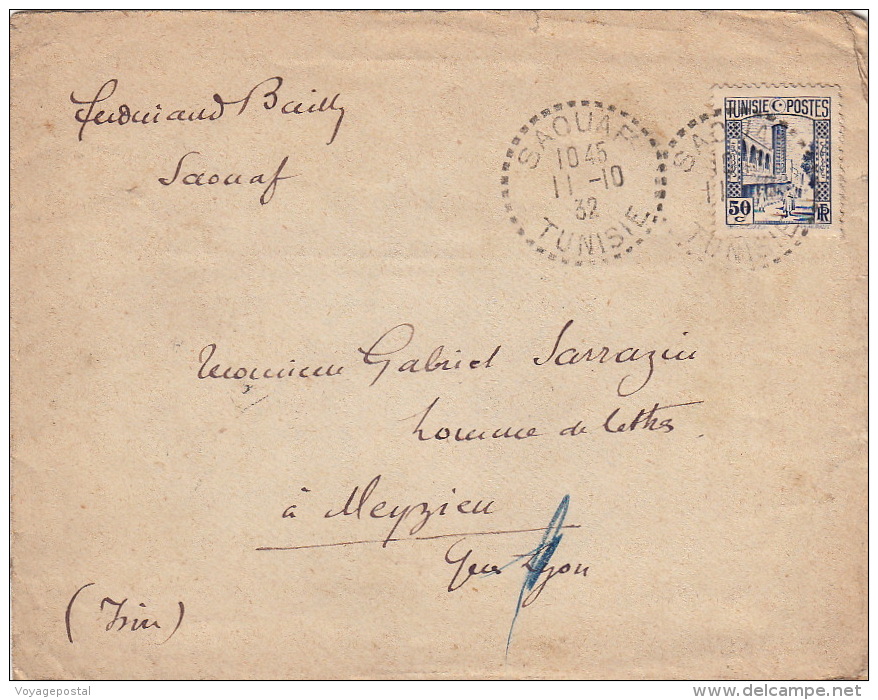 Ferdinand Bailly
Saouaf
SAOUAF
10 45
11 -10
32
TUNISIE
TUNISIE POSTES
50
c
RF
SAOUAF
TUNISIE
Monsieur Gabriel Sarrazin
homme de lettres
à Meyzieu
Lyon
(Isère)
Voyagepostal
delcampe.net